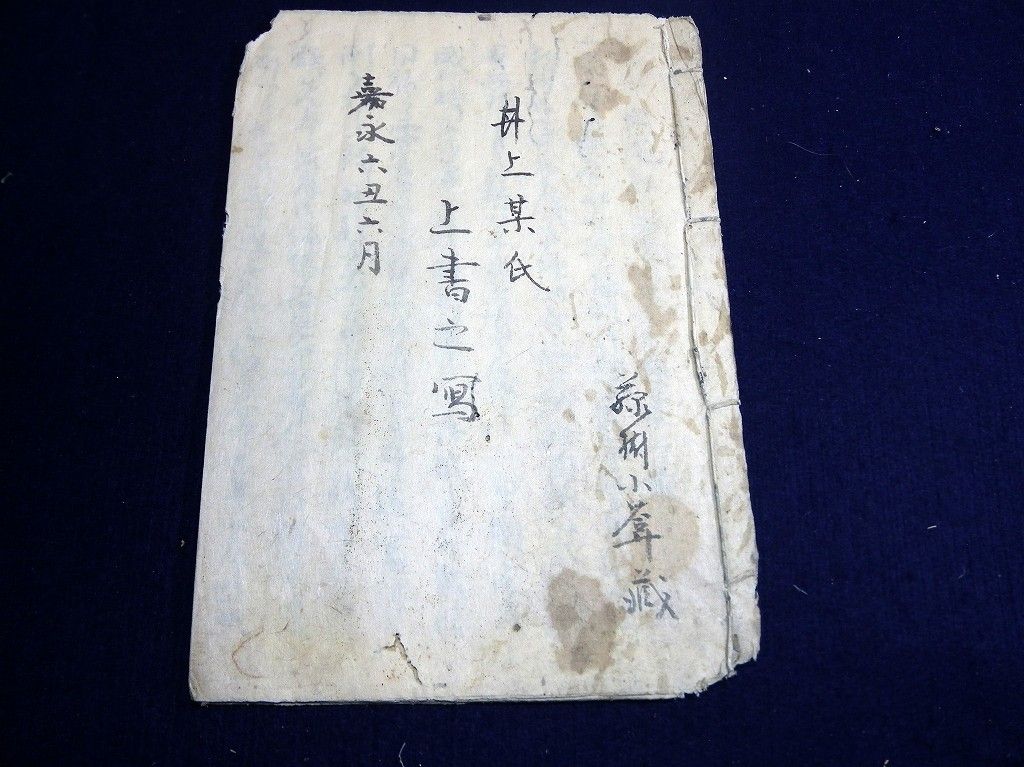 井上某氏
上書之写
嘉永六丑六月
小 蔵